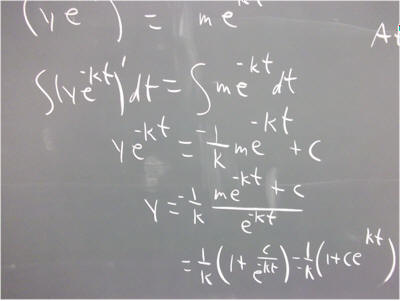 (ye )' = me^-kt
At
∫(ye^-kt)' dt = ∫ me^-kt dt
ye^-kt = -1/k me^-kt + c
y = -1/k (me^-kt + c)/e^-kt
= -1/k (1 + c/e^-kt) = -1/k (1 + ce^kt)